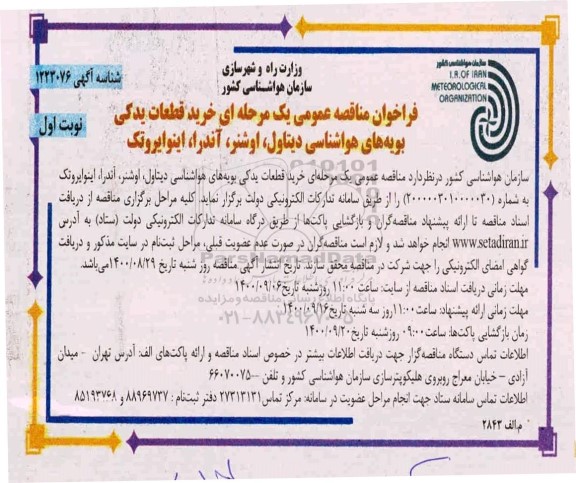 سازمان هواشناسی کشور
I.R.OF IRAN
METEOROLOGICAL
ORGANIZATION
وزارت راه و شهرسازی
سازمان هواشناسی کشور
شناسه آگهی ۱۲۲۳۰۷۶
نوبت اول
فراخوان مناقصه عمومی یک مرحله ای خرید قطعات یدکی
بویه‌های هواشناسی دیتاول، اوشنر، آندرا، اینوایروتک
سازمان هواشناسی کشور درنظردارد مناقصه عمومی یک مرحله‌ای خرید قطعات یدکی بویه‌های هواشناسی دیتاول، اوشنر، آندرا، اینوایروتک
به شماره (۲۰۰۰۰۰۳۰۱۰۰۰۰۰۳۰) را از طریق سامانه تدارکات الکترونیکی دولت برگزار نماید. کلیه مراحل برگزاری مناقصه از دریافت
اسناد مناقصه تا ارائه پیشنهاد مناقصه‌گران و بازگشایی پاکت‌ها از طریق درگاه سامانه تدارکات الکترونیکی دولت (ستاد) به آدرس
www.setadiran.ir انجام خواهد شد و لازم است مناقصه‌گران در صورت عدم عضویت قبلی، مراحل ثبت‌نام در سایت مذکور و دریافت
گواهی امضای الکترونیکی را جهت شرکت در مناقصه محقق سازند. تاریخ انتشار آگهی مناقصه روز شنبه تاریخ ۱۴۰۰/۰۸/۲۹ می‌باشد.
مهلت زمانی دریافت اسناد مناقصه از سایت: ساعت ۱۱:۰۰ روزشنبه تاریخ ۱۴۰۰/۰۹/۰۶
مهلت زمانی ارائه پیشنهاد: ساعت ۱۱:۰۰ روز سه شنبه تاریخ ۱۴۰۰/۰۹/۱۶
زمان بازگشایی پاکت‌ها: ساعت ۰۹:۰۰ روزشنبه تاریخ ۱۴۰۰/۰۹/۲۰
اطلاعات تماس دستگاه مناقصه‌گزار جهت دریافت اطلاعات بیشتر در خصوص اسناد مناقصه و ارائه پاکت‌های الف: آدرس تهران - میدان
آزادی - خیابان معراج روبروی هلیکوپترسازی سازمان هواشناسی کشور و تلفن ۶۶۰۷۰۰۷۵
اطلاعات تماس سامانه ستاد جهت انجام مراحل عضویت در سامانه: مرکز تماس ۲۷۳۱۳۱۳۱ دفتر ثبت‌نام : ۸۸۹۶۹۷۳۷ و ۸۵۱۹۳۷۶۸
م.الف ۲۸۴۳
ParsNamadData
پایگاه اطلاع رسانی مناقصه و مزایده
۰۲۱-۸۸۳۴۹۶۷۰-۵